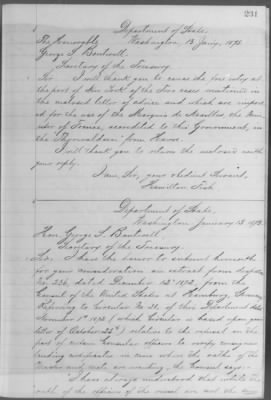 231
Department of State,
Washington, 13 Jany, 1873
The Honorable
George S. Boutwell
Secretary of the Treasury
Sir. I will thank you to cause the free entry at
the port of New York of the two cases mentioned in
the enclosed letter of advice and which are import
ed for the use of the Marquis de Noailles the Min
ister of France, accredited to this Government, in
the from Havre.
I will thank you to return the enclosure with
your reply.
I am, Sir, your obedient Servant,
Hamilton Fish
Department of State,
Washington January 13 1873.
Hon. George S. Boutwell
Secretary of the Treasury.
Sir, I have the honor to submit herewith
for your consideration an extract from despatch
No. 236, dated December 12th 1872, from the
Consul of the United States at Hamburg, Germany
referring to Circular No. of this Department dated
November 1st 1872 (which Circular is based upon your
letter of October 22d) relative to the refusal on the
part of certain Consular officers to certify
certificates in cases where the oaths of the
Master and mate are wanting, the Consul says:
"I have always understood that while the
oath of the officers of the vessel are not the